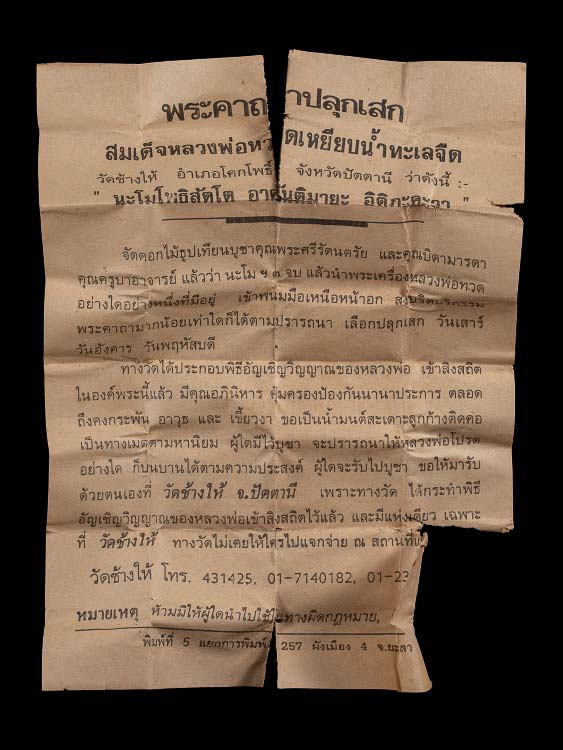 พระคาถาปลุกเสก
สมเด็จหลวงพ่อทวดเหยียบน้ำทะเลจืด
วัดช้างให้ อำเภอโคกโพธิ์ จังหวัดปัตตานี ว่าดังนี้ :-
" นะโมโพธิสัตโต อาคันติมายะ อิติภะคะวา "
จัดดอกไม้ธูปเทียนบูชาคุณพระศรีรัตนตรัย และคุณบิดามารดา
คุณครูบาอาจารย์ แล้วว่า นะโม ฯ ๓ จบ แล้วนำพระเครื่องหลวงพ่อทวด
อย่างใดอย่างหนึ่งที่มีอยู่ เข้าพนมมือเหนือหน้าอก สงบจิตบริกรรม
พระคาถามากน้อยเท่าใดก็ได้ตามปรารถนา เลือกปลุกเสก วันเสาร์
วันอังคาร วันพฤหัสบดี
ทางวัดได้ประกอบพิธีอัญเชิญวิญญาณของหลวงพ่อ เข้าสิงสถิต
ในองค์พระนี้แล้ว มีคุณอภินิหาร คุ้มครองป้องกันนานาประการ ตลอด
ถึงคงกระพัน อาวุธ และ เขี้ยวงา ขอเป็นน้ำมนต์สะเดาะลูกก้างติดคอ
เป็นทางเมตตามหานิยม ผู้ใดมีไว้บูชา จะปรารถนาให้หลวงพ่อโปรด
อย่างใด ก็บนบานได้ตามความประสงค์ ผู้ใดจะรับไปบูชา ขอให้มารับ
ด้วยตนเองที่ วัดช้างให้ จ.ปัตตานี เพราะทางวัด ได้กระทำพิธี
อัญเชิญวิญญาณของหลวงพ่อเข้าสิงสถิตไว้แล้ว และมีแห่งเดียว เฉพาะ
ที่ วัดช้างให้ ทางวัดไม่เคยให้ใครไปแจกจ่าย ณ สถานที่
วัดช้างให้ โทร. 431425, 01-7140182, 01-23
หมายเหตุ ห้ามมิให้ผู้ใดนำไปใช้ในทางผิดกฎหมาย,
พิมพ์ที่ 5 แยกการพิมพ์ 257 ผังเมือง 4 จ.ยะลา